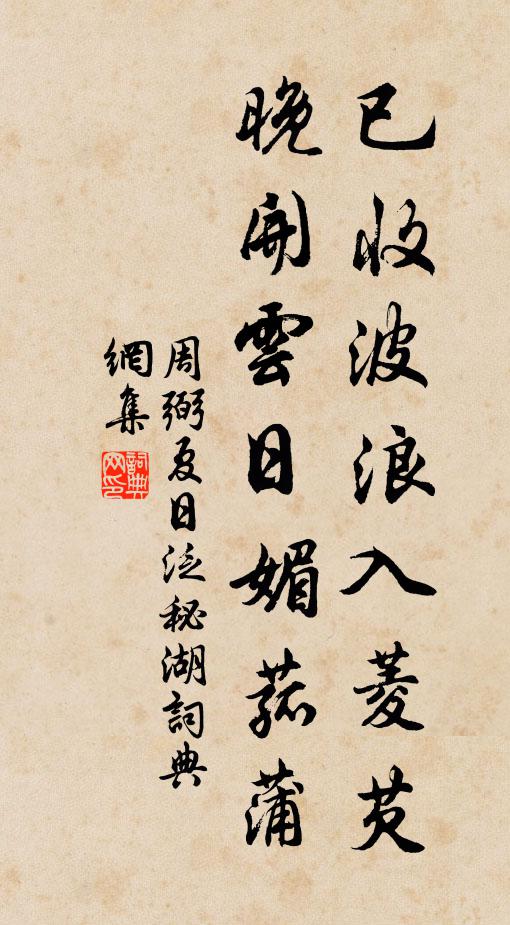 已收波浪入菱芡
晚開雲日媚菰蒲
周弼夏日泛秘湖詞典
網集
詞典
網印